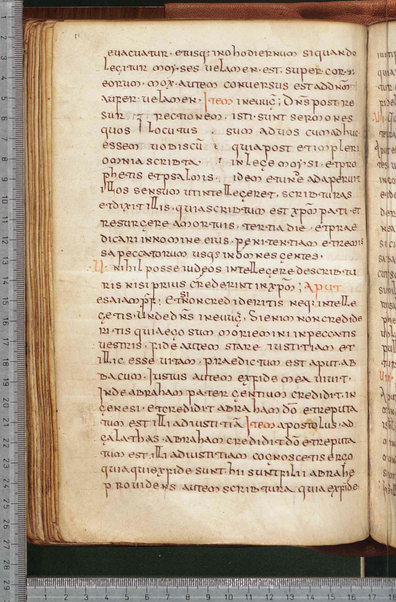 evacuatur · etisq: inohodiernum siquando
legitur moyses uelamen · est · super cor ·
eorum · mox · autem conuersus est addnm̄
aufer · uelamen · Item ineuuḡ; Dn̄s post re
sur rectionem · isti · sunt sermones
quos locutus sum aduos cum adhuc
essem uobiscū quia post et impleri
omnia scribta · in lege moysi · et pro
phetis et psalmis · idem et tunc adaperuit
illos sensum utintellegeret · scribturas
et dixit illis · quia scribtum est xpm̄ pati · et
resurgere a mortuis · tertia die · et prae
dicari in nomine eius · penitentiam et remis
sa peccatorum usq: in domnes gentes ·
nihil posse iudeos intellegere de scribtu
ris nisi prius crederint in xpm̄; Aput
esaiam; Et si non credideritis neq: intelle
getis · Unde dn̄s in euuḡ · Si enim non credide
ritis quia ego sum moriemini in peccatis
uestris · fide autem stare iustitiam et
illic esse uitam · praedictum est aput · ab
bacum · Iustus autem ex fide mea uiuit ·
Inde abraham pater gentium credidit · in
genesi · et credidit abraham dō et reputa
tum est illi ad iustitiā Item apostolus · ad
galathas · abraham credidit dō et reputa
tum est illi ad iustitiam cognoscetis ergo
quia qui ex fide sunt · hii sunt filii abrahe
prouidens autem scribtura quia ex fide